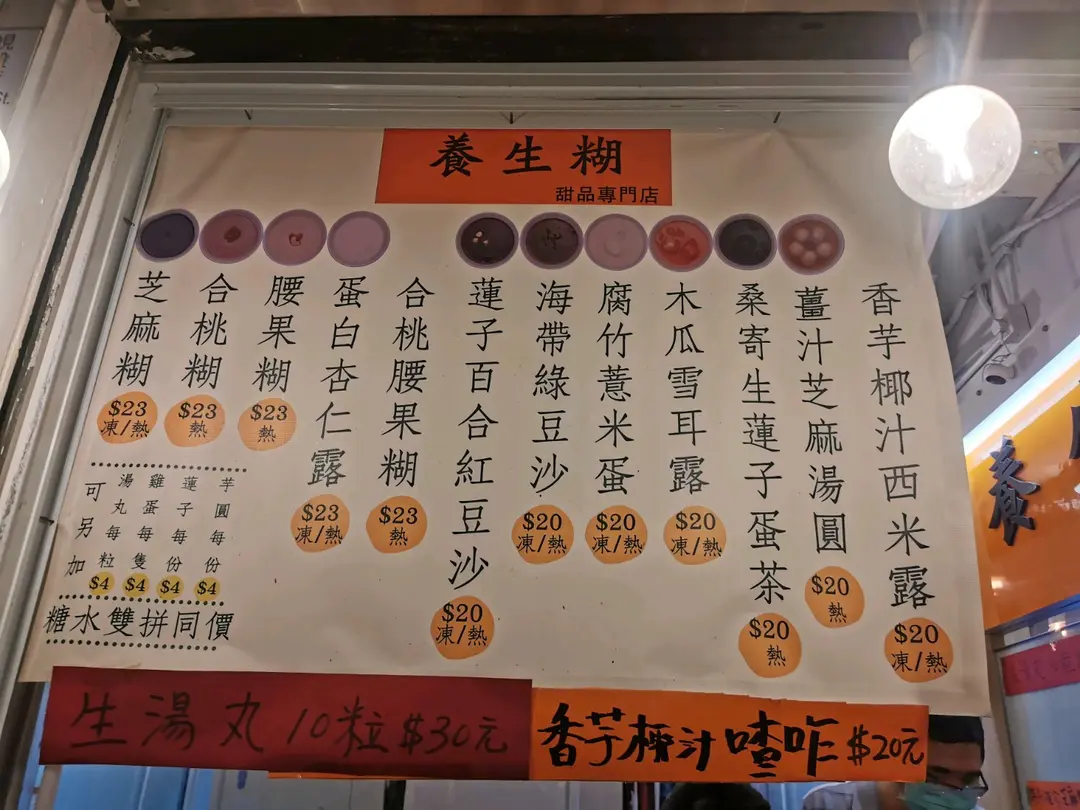 養生糊
甜品專門店
芝麻糊
$23
凍/熱
合桃糊
$23
熱
腰果糊
$23
熱
蛋白杏仁露
$23
凍/熱
合桃腰果糊
$23
熱
蓮子百合紅豆沙
$20
凍/熱
海帶綠豆沙
$20
凍/熱
腐竹薏米蛋
$20
凍/熱
木瓜雪耳露
$20
凍/熱
桑寄生蓮子蛋茶
$20
熱
薑汁芝麻湯圓
$20
熱
香芋椰汁西米露
$20
凍/熱
可另加
湯丸每粒
$4
雞蛋每隻
$4
蓮子每份
$4
芋圓每份
$4
糖水雙拼同價
生湯丸 10粒 $30元
香芋椰汁喳咋 $20元
養
St.